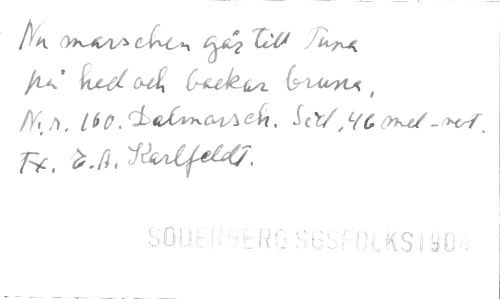 Nu marschen går till Tuna
på hed och backar bruna,
N:r. 160. Dalmarsch. Sid. 46 mel-not.
Tx. E.A. Karlfeldt.
SÖDERBERG SGSFOLKS1904